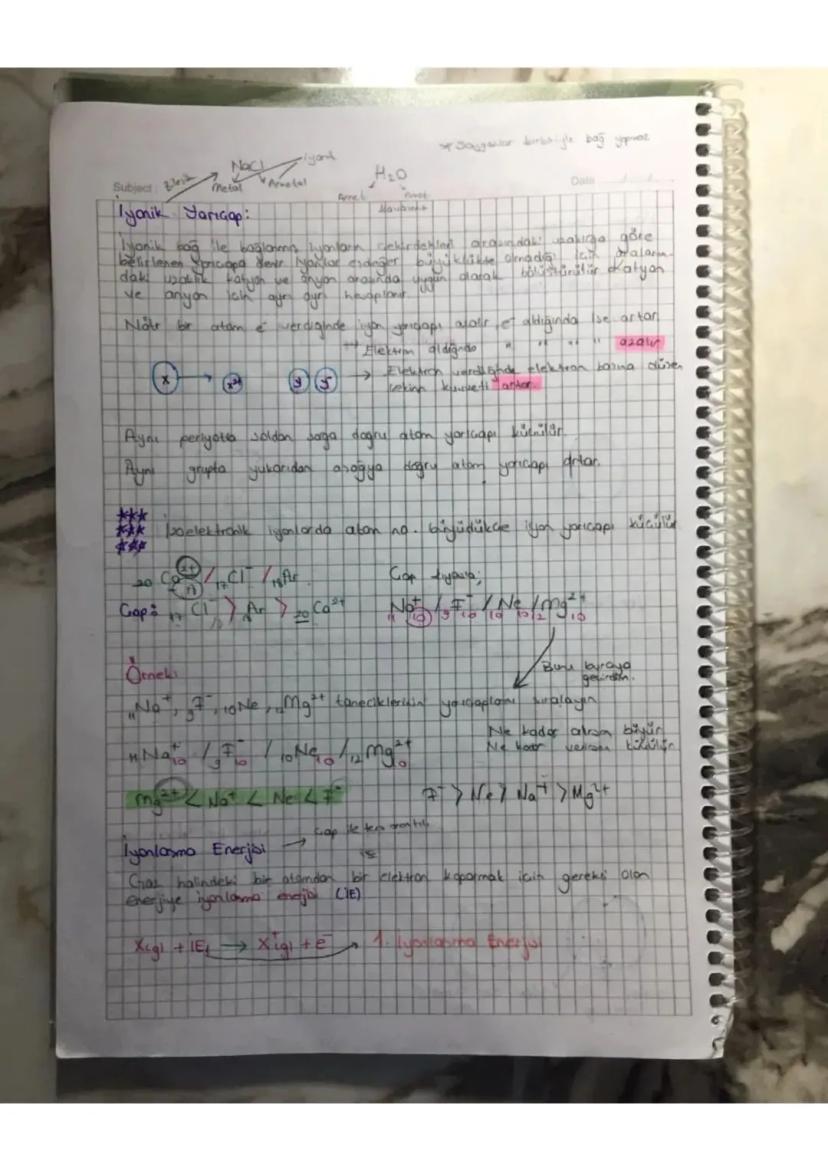 * Soygazlar birbiriyle bağ yapmaz
NaCl iyonik
H₂O
Subject: Metal Ametal Date
Ametal Ametal
İyonik Yarıçap:
İyonik bağ ile bağlanmış iyonların çekirdekleri arasındaki uzaklığa göre
belirlenen yarıçapa denir İyonlar eşdeğer büyüklükte olmadığı için araların-
daki uzaklık katyon ve anyon arasında uygun olarak bölüştürülür Katyon
ve anyon için ayrı ayrı hesaplanır
Nötr bir atom e⁻ verdiğinde iyon yarıçapı azalır, e⁻ aldığında ise artar.
→ Elektron aldığında " " " " azalır
X → X²⁺ y y⁻ → Elektron verdiğinde elektron başına düşen
çekim kuvveti artar.
Aynı periyotta soldan sağa doğru atom yarıçapı küçülür.
Aynı grupta yukarıdan aşağıya doğru atom yarıçapı artar.
*** *** *** İzoelektronik iyonlarda atom no. büyüdükçe iyon yarıçapı küçülür
₂₀Ca²⁺ / ₁₇Cl⁻ / ₁₈Ar Çap
Çap: ₁₇Cl⁻ > Ar > ₂₀Ca²⁺ ₁₁Na⁺₁₀ / ₉F⁻₁₀ / ₁₀Ne₁₀ / ₁₂Mg²⁺₁₀
Bunu buraya
Örnek:
₁₁Na⁺, ₉F⁻, ₁₀Ne, ₁₂Mg²⁺ taneciklerinin yarıçaplarını sıralayın
Ne kadar alırsan büyür
Ne kadar verirsen küçülür
₁₁Na⁺₁₀ / ₉F⁻₁₀ / ₁₀Ne₁₀ / ₁₂Mg²⁺₁₀
Mg²⁺ < Na⁺ < Ne < F⁻ F⁻ > Ne > Na⁺ > Mg²⁺
İyonlaşma Enerjisi → Çap ile ters orantılı
Gaz halindeki bir atomdan bir elektron koparmak için gerekli olan
enerjiye iyonlaşma enerjisi (İE)
X(g) + İE₁ → X⁺(g) + e⁻ → 1. İyonlaşma Enerjisi